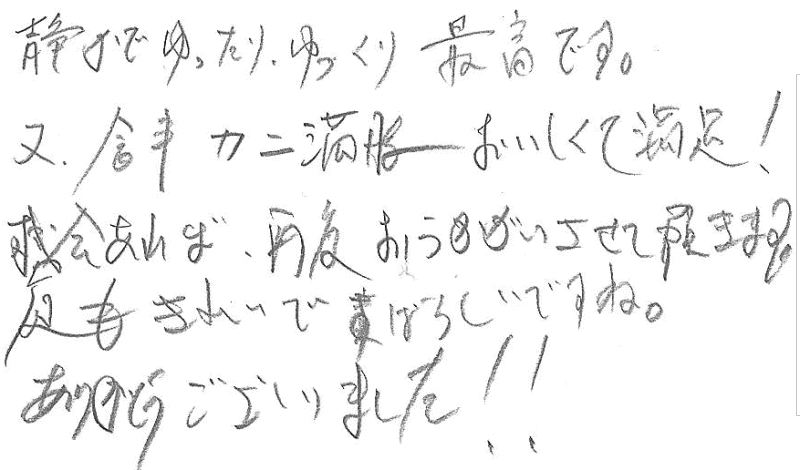 静かでゆったり、ゆっくり 最高です。
又、食事 カニ満腹 おいしくて満足！
機会あれば、再度 おうかがいさせて頂きます。
庭もきれいで素ばらしいですね。
ありがとうございました！！